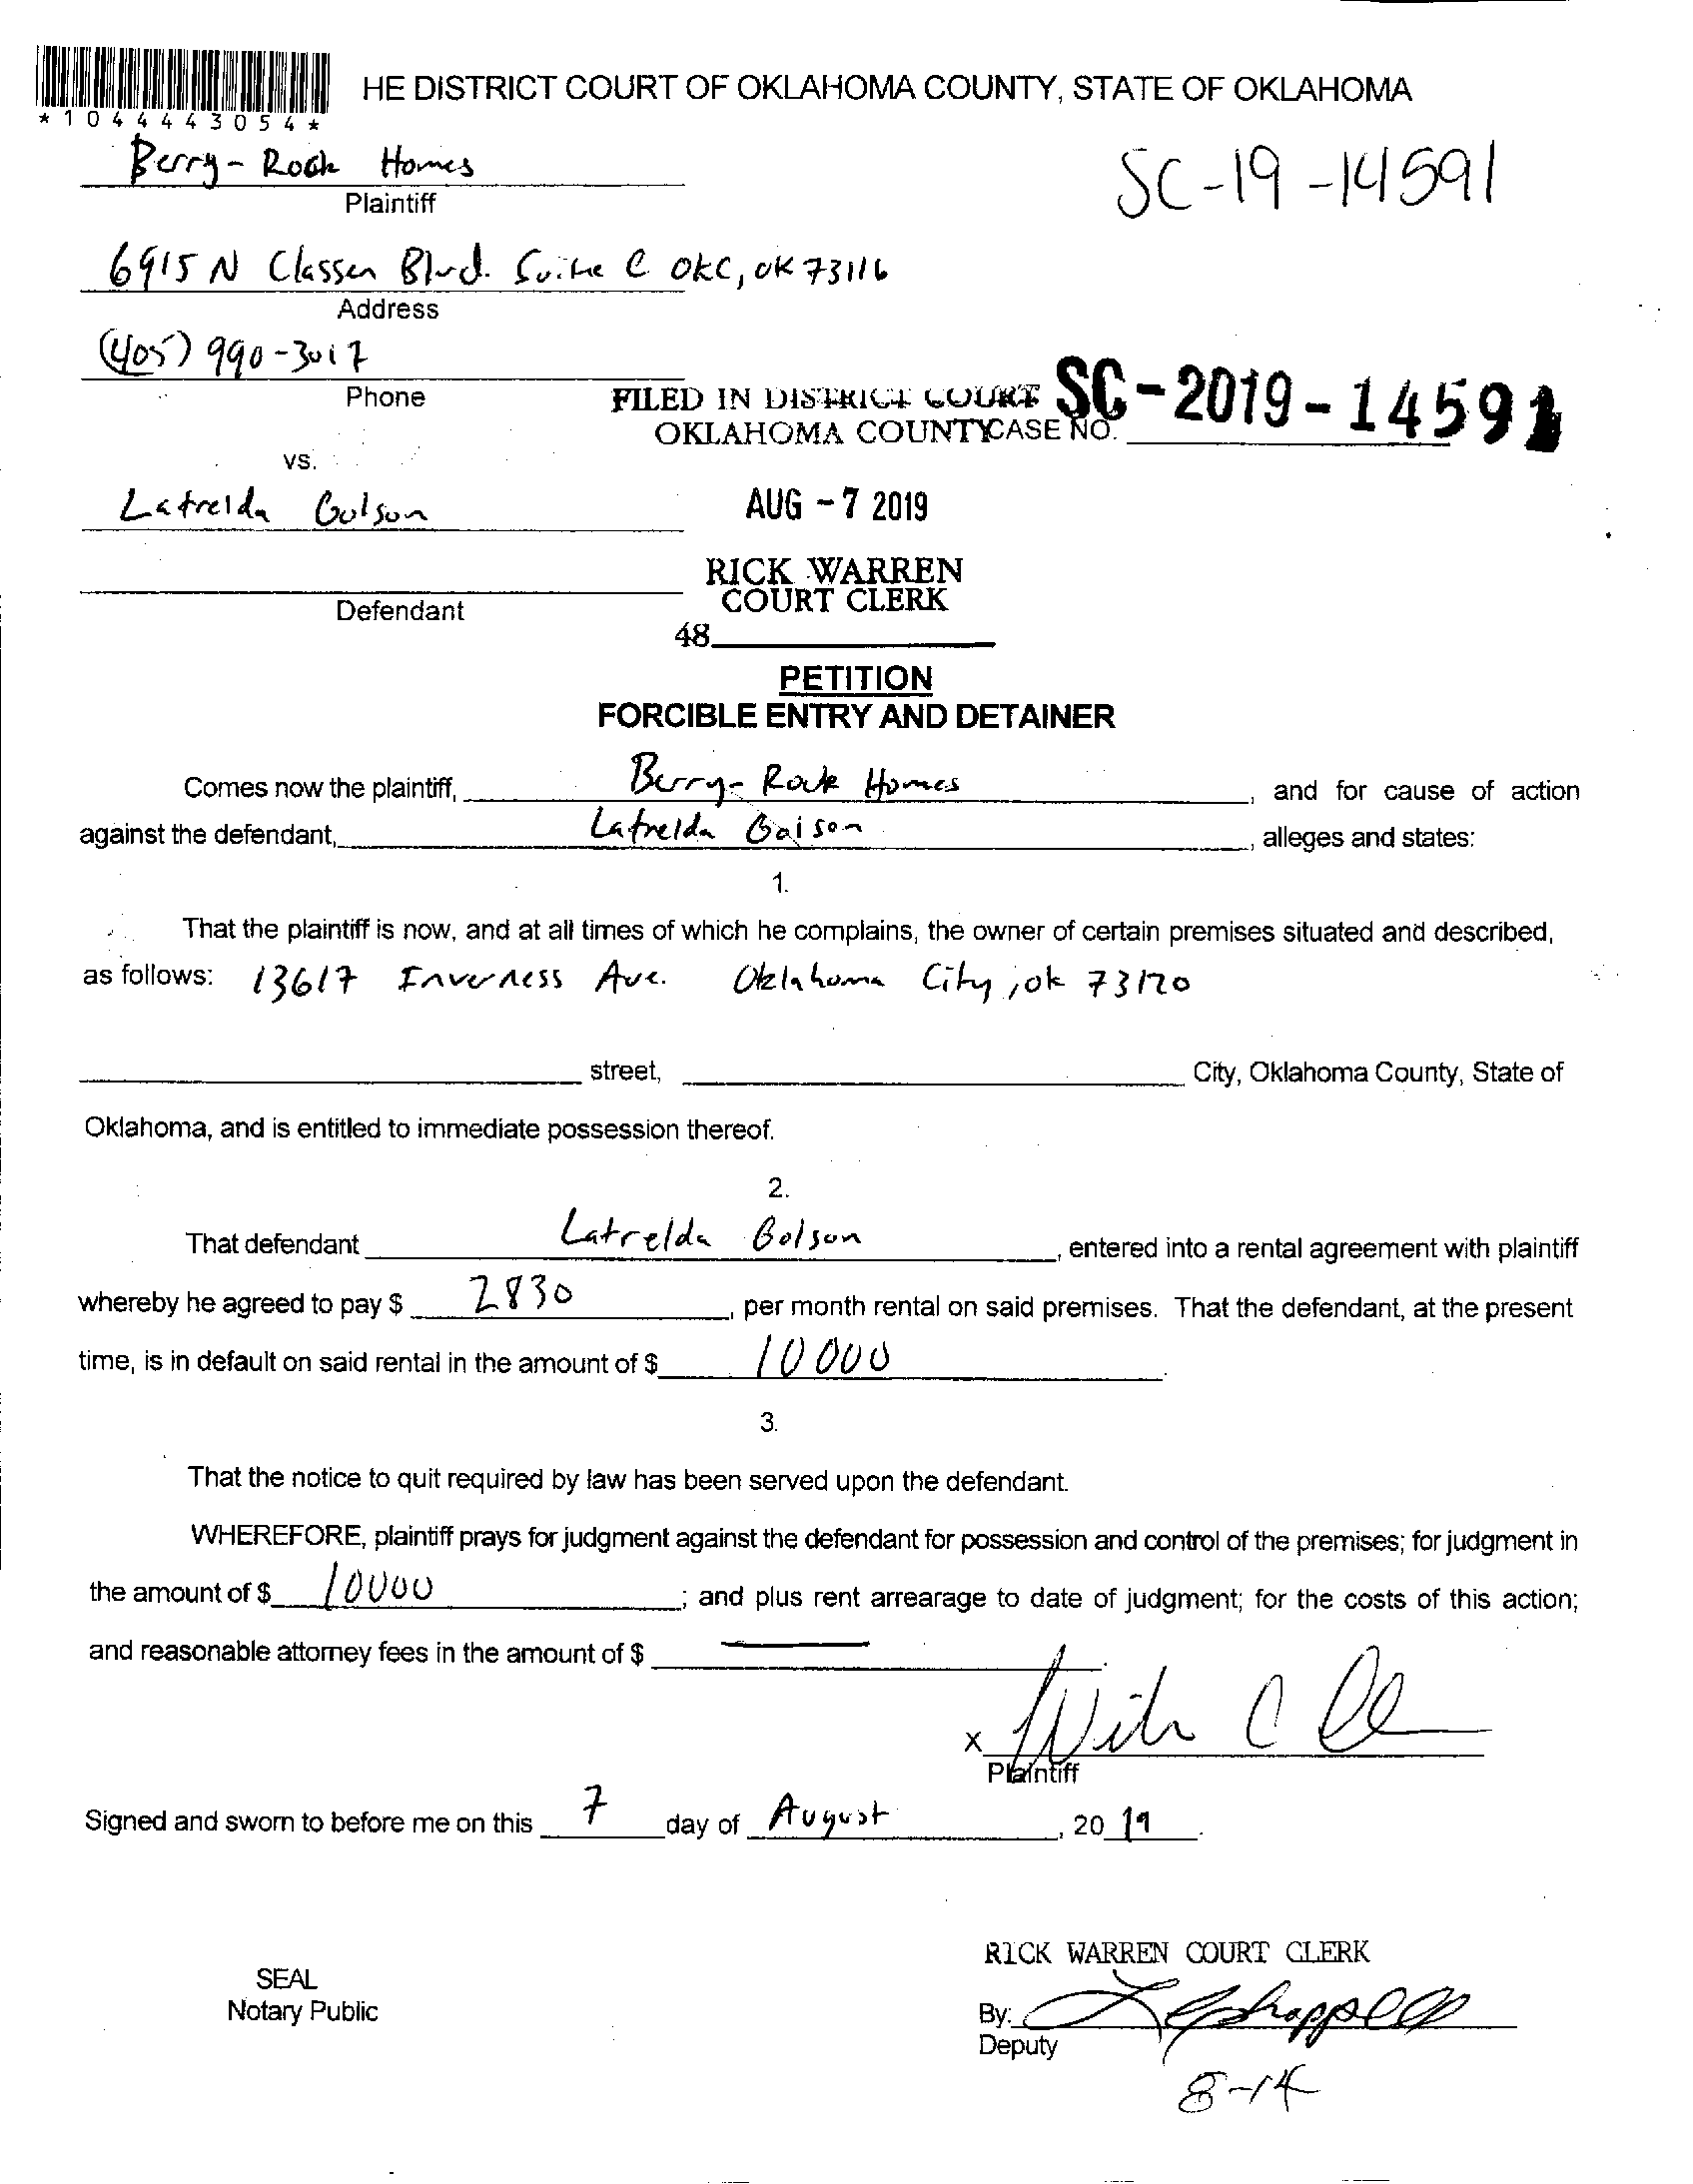 HE DISTRICT COURT OF OKLAHOMA COUNTY, STATE OF OKLAHOMA
*1044443054*
Berry-Rock Homes
SC-19-14591
Plaintiff
6915 N Classen Blvd. Suite C OKC, OK 73116
Address
(405) 990-3017
Phone
FILED IN DISTRICT COURT
OKLAHOMA COUNTY
CASE NO. SC-2019-14591
vs.
Latrelda Golson
AUG -7 2019
RICK WARREN
COURT CLERK
Defendant
48
PETITION
FORCIBLE ENTRY AND DETAINER
Comes now the plaintiff, Berry-Rock Homes, and for cause of action
against the defendant, Latrelda Golson, alleges and states:
1.
That the plaintiff is now, and at all times of which he complains, the owner of certain premises situated and described,
as follows: 13617 Inverness Ave. Oklahoma City, OK 73120
street, City, Oklahoma County, State of
Oklahoma, and is entitled to immediate possession thereof.
2.
That defendant Latrelda Golson, entered into a rental agreement with plaintiff
whereby he agreed to pay $ 2830, per month rental on said premises. That the defendant, at the present
time, is in default on said rental in the amount of $ 10000.
3.
That the notice to quit required by law has been served upon the defendant.
WHEREFORE, plaintiff prays for judgment against the defendant for possession and control of the premises; for judgment in
the amount of $ 10000; and plus rent arrearage to date of judgment; for the costs of this action;
and reasonable attorney fees in the amount of $ —.
X
Plaintiff
Signed and sworn to before me on this 7 day of August, 2019.
RICK WARREN COURT CLERK
SEAL
Notary Public
By:
Deputy
8-14